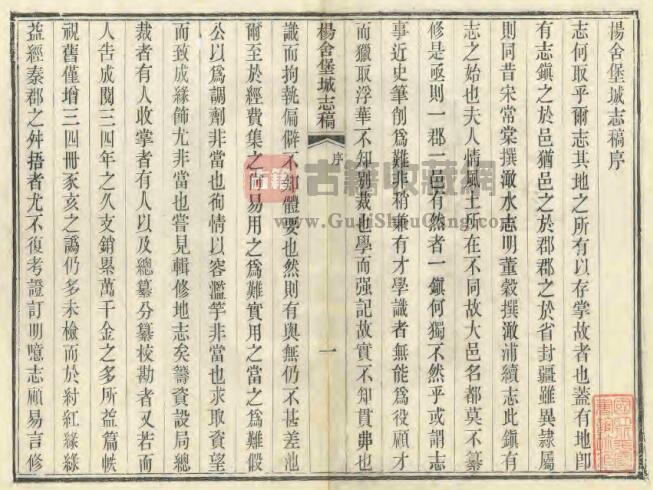 楊舍堡城志稿序
志何取乎爾志其地之所有以存掌故者也蓋有地卽
有志鎮之於邑猶邑之於郡郡之於省封疆雖異隸屬
則同昔宋常棠撰澉水志明董穀撰澉浦續志此鎮有
志之始也夫人情風土所在不同故大邑名都莫不纂
修是亟則一郡一邑有然者一鎮何獨不然乎或謂志
事近史筆創爲難非稍兼有才學識者無能爲役顧才
而獵取浮華不知別裁也學而强記故實不知貫弗也
楊舍堡城志稿 序 一
識而拘執偏僻不知體要也然則有與無仍不甚差池
爾至於經費集之易用之爲難實用之當之爲難假
公以爲調劑非當也徇情以容濫竽非當也求取資望
而致成緣飾尤非當也嘗見輯修地志矣籌資設局總
裁者有人收掌者有人以及總纂分纂校勘者又若而
人告成閱三四年之久支銷累萬千金之多所益篇帙
視舊僅增三四冊豕亥之譌仍多未檢而於紂紅緣綠
益經秦郡之舛捂者尤不復考證訂明噫志顧易言修
古籍
古籍收藏网
www.GuJiShouCang.com